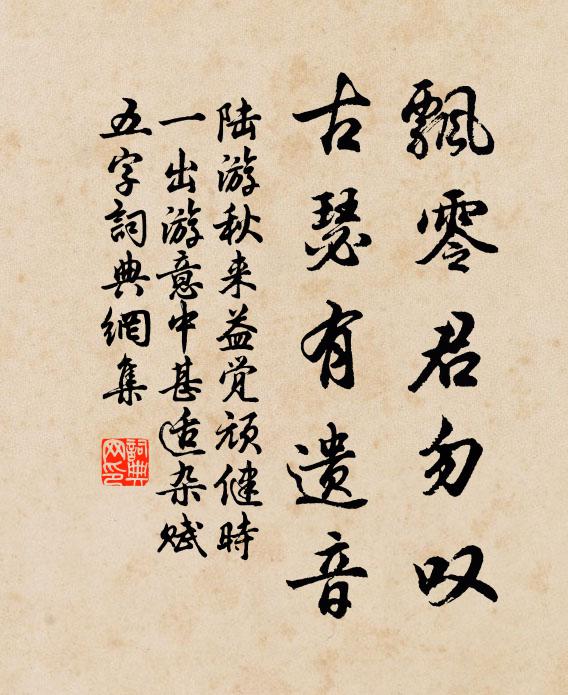 飘零君勿叹
古瑟有遗音
陆游秋来益觉顽健時
一出游意中甚适杂赋
五字詞典網集
詞典
网印